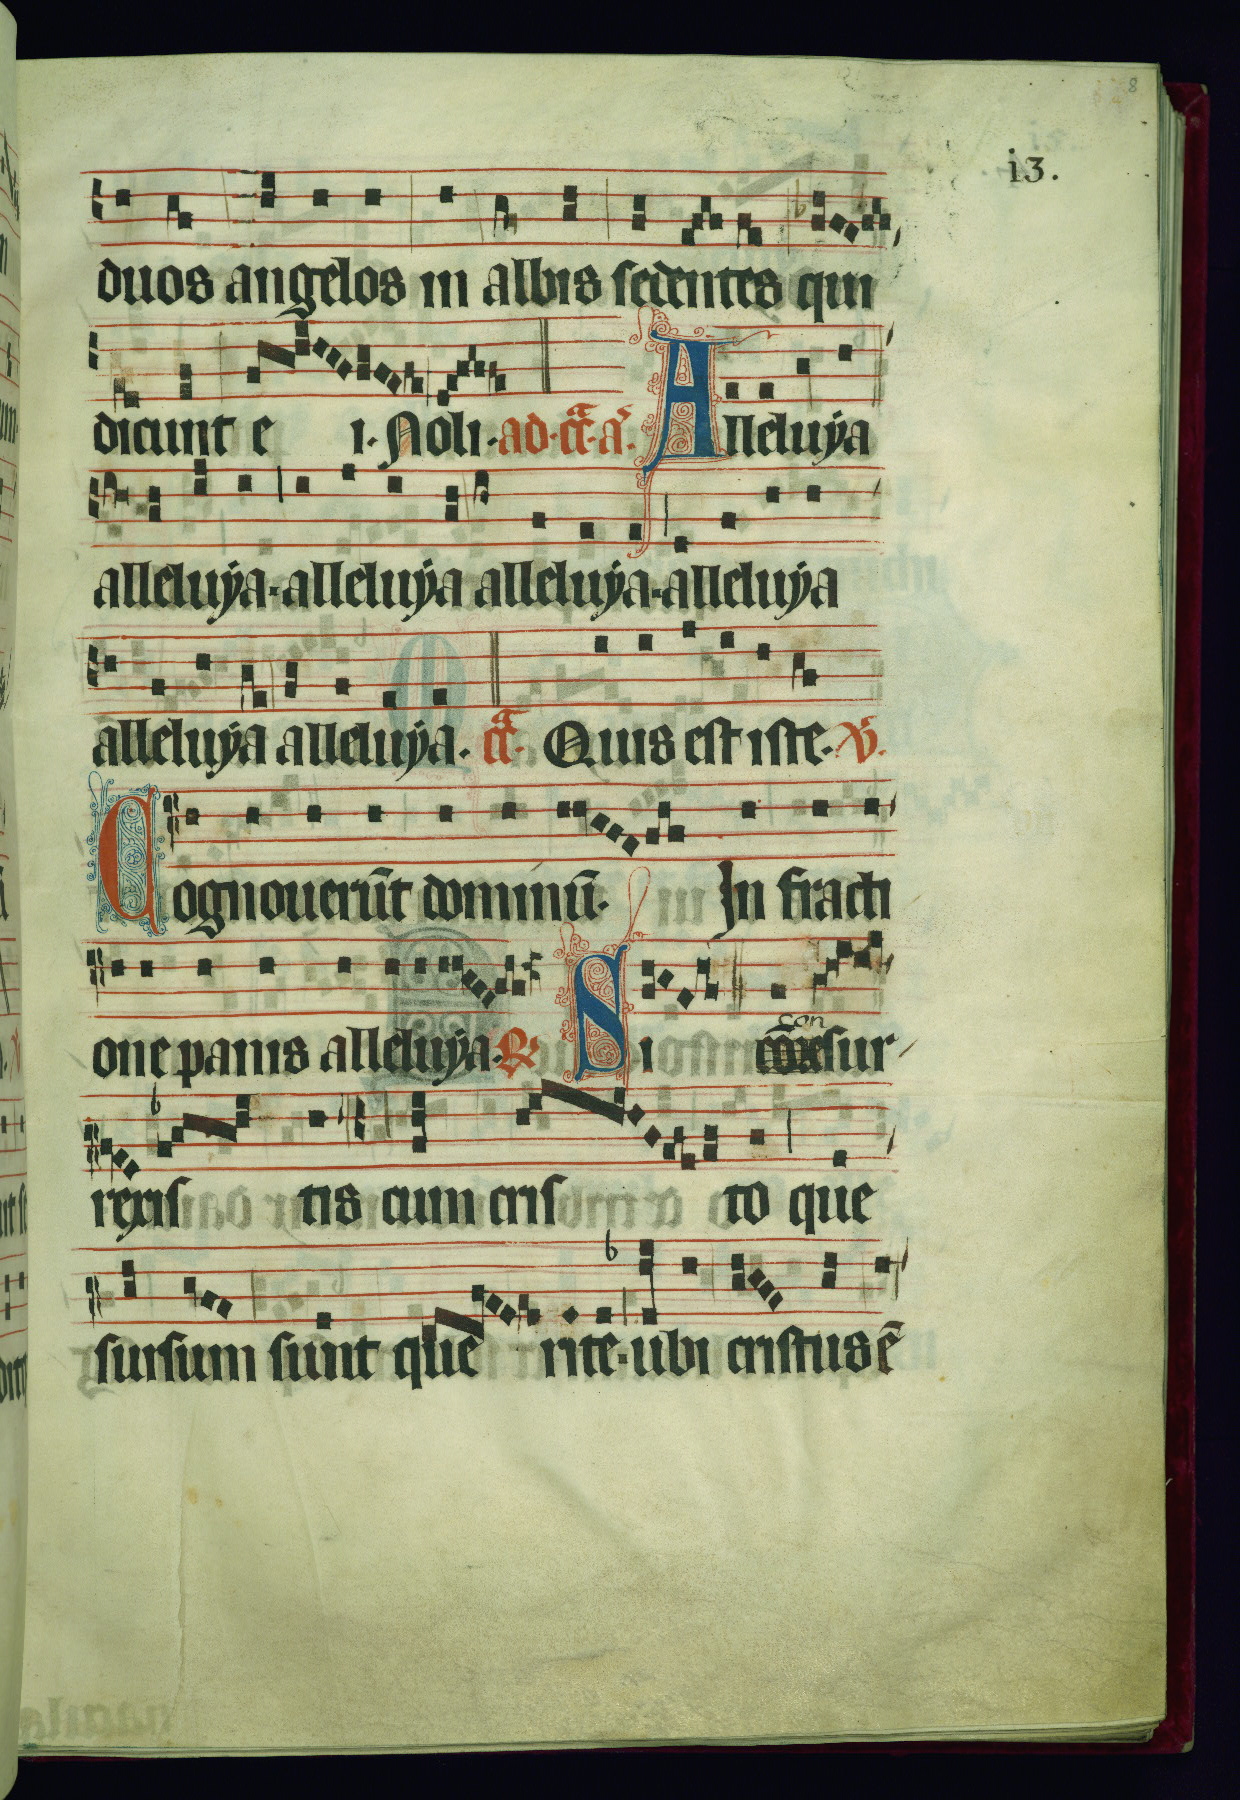 8
i3.
duos angelos in albis sedentes qui
dicunt e i. Noli. ad. cĉa. a᷒. Alleluÿa
alleluÿa. alleluÿa alleluÿa. alleluÿa
alleluÿa alleluÿa. Quis est iste. V.
Cognouerūt dominū. In fracti
one panis alleluÿa. R Si
con
sur
rexis tis cum cris to que
sursum sunt que rite. ubi cristus ē